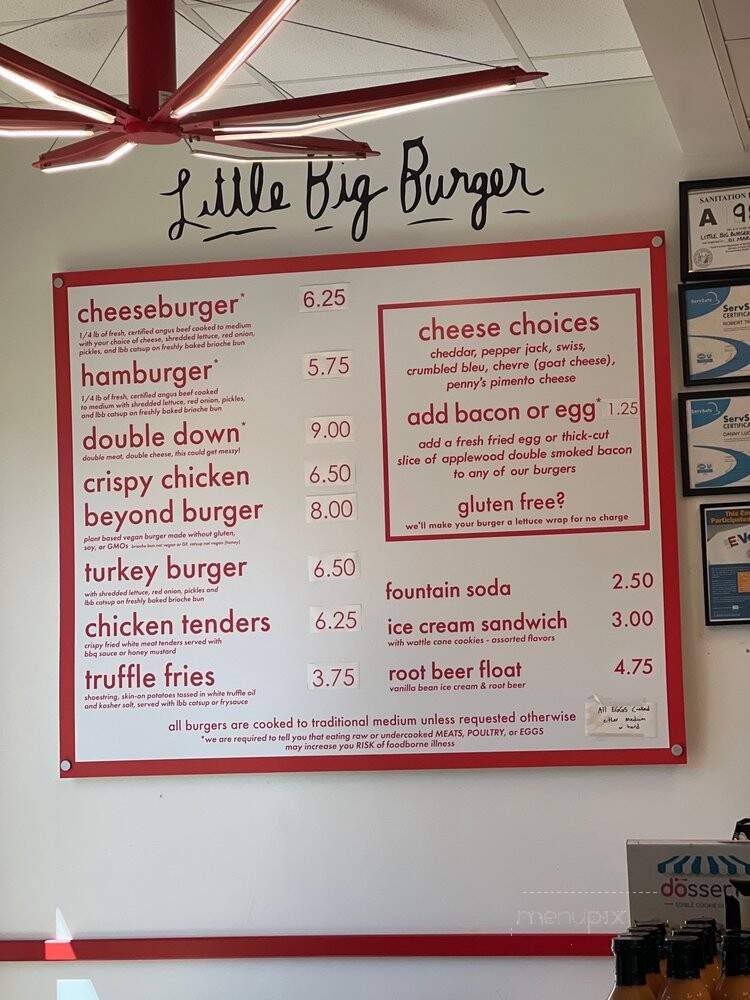 Little Big Burger
cheeseburger* 6.25
1/4 lb of fresh, certified angus beef cooked to medium
with your choice of cheese, shredded lettuce, red onion,
pickles, and lbb catsup on freshly baked brioche bun
hamburger* 5.75
1/4 lb of fresh, certified angus beef cooked
to medium with shredded lettuce, red onion, pickles,
and lbb catsup on freshly baked brioche bun
double down* 9.00
double meat, double cheese, this could get messy!
crispy chicken 6.50
beyond burger 8.00
plant based vegan burger made without gluten,
soy, or GMOs brioche bun not vegan or GF. catsup not vegan (honey)
turkey burger 6.50
with shredded lettuce, red onion, pickles and
lbb catsup on freshly baked brioche bun
chicken tenders 6.25
crispy fried white meat tenders served with
bbq sauce or honey mustard
truffle fries 3.75
shoestring, skin-on potatoes tossed in white truffle oil
and kosher salt, served with lbb catsup or frysauce
cheese choices
cheddar, pepper jack, swiss,
crumbled bleu, chevre (goat cheese),
penny's pimento cheese
add bacon or egg* 1.25
add a fresh fried egg or thick-cut
slice of applewood double smoked bacon
to any of our burgers
gluten free?
we'll make your burger a lettuce wrap for no charge
fountain soda 2.50
ice cream sandwich 3.00
with waffle cone cookies - assorted flavors
root beer float 4.75
vanilla bean ice cream & root beer
all burgers are cooked to traditional medium unless requested otherwise
*we are required to tell you that eating raw or undercooked MEATS, POULTRY, or EGGS
may increase you RISK of foodborne illness
All EGGS Cooked
either medium
or hard
SANITATION
A 9
LITTLE BIG BURGER
ServSafe
ServS
CERTIFICA
ROBERT
ServSafe
ServS
CERTIFICA
DANNY
This Em
Participates
E-Ve
dosser
EDIBLE COOKIE
menupix